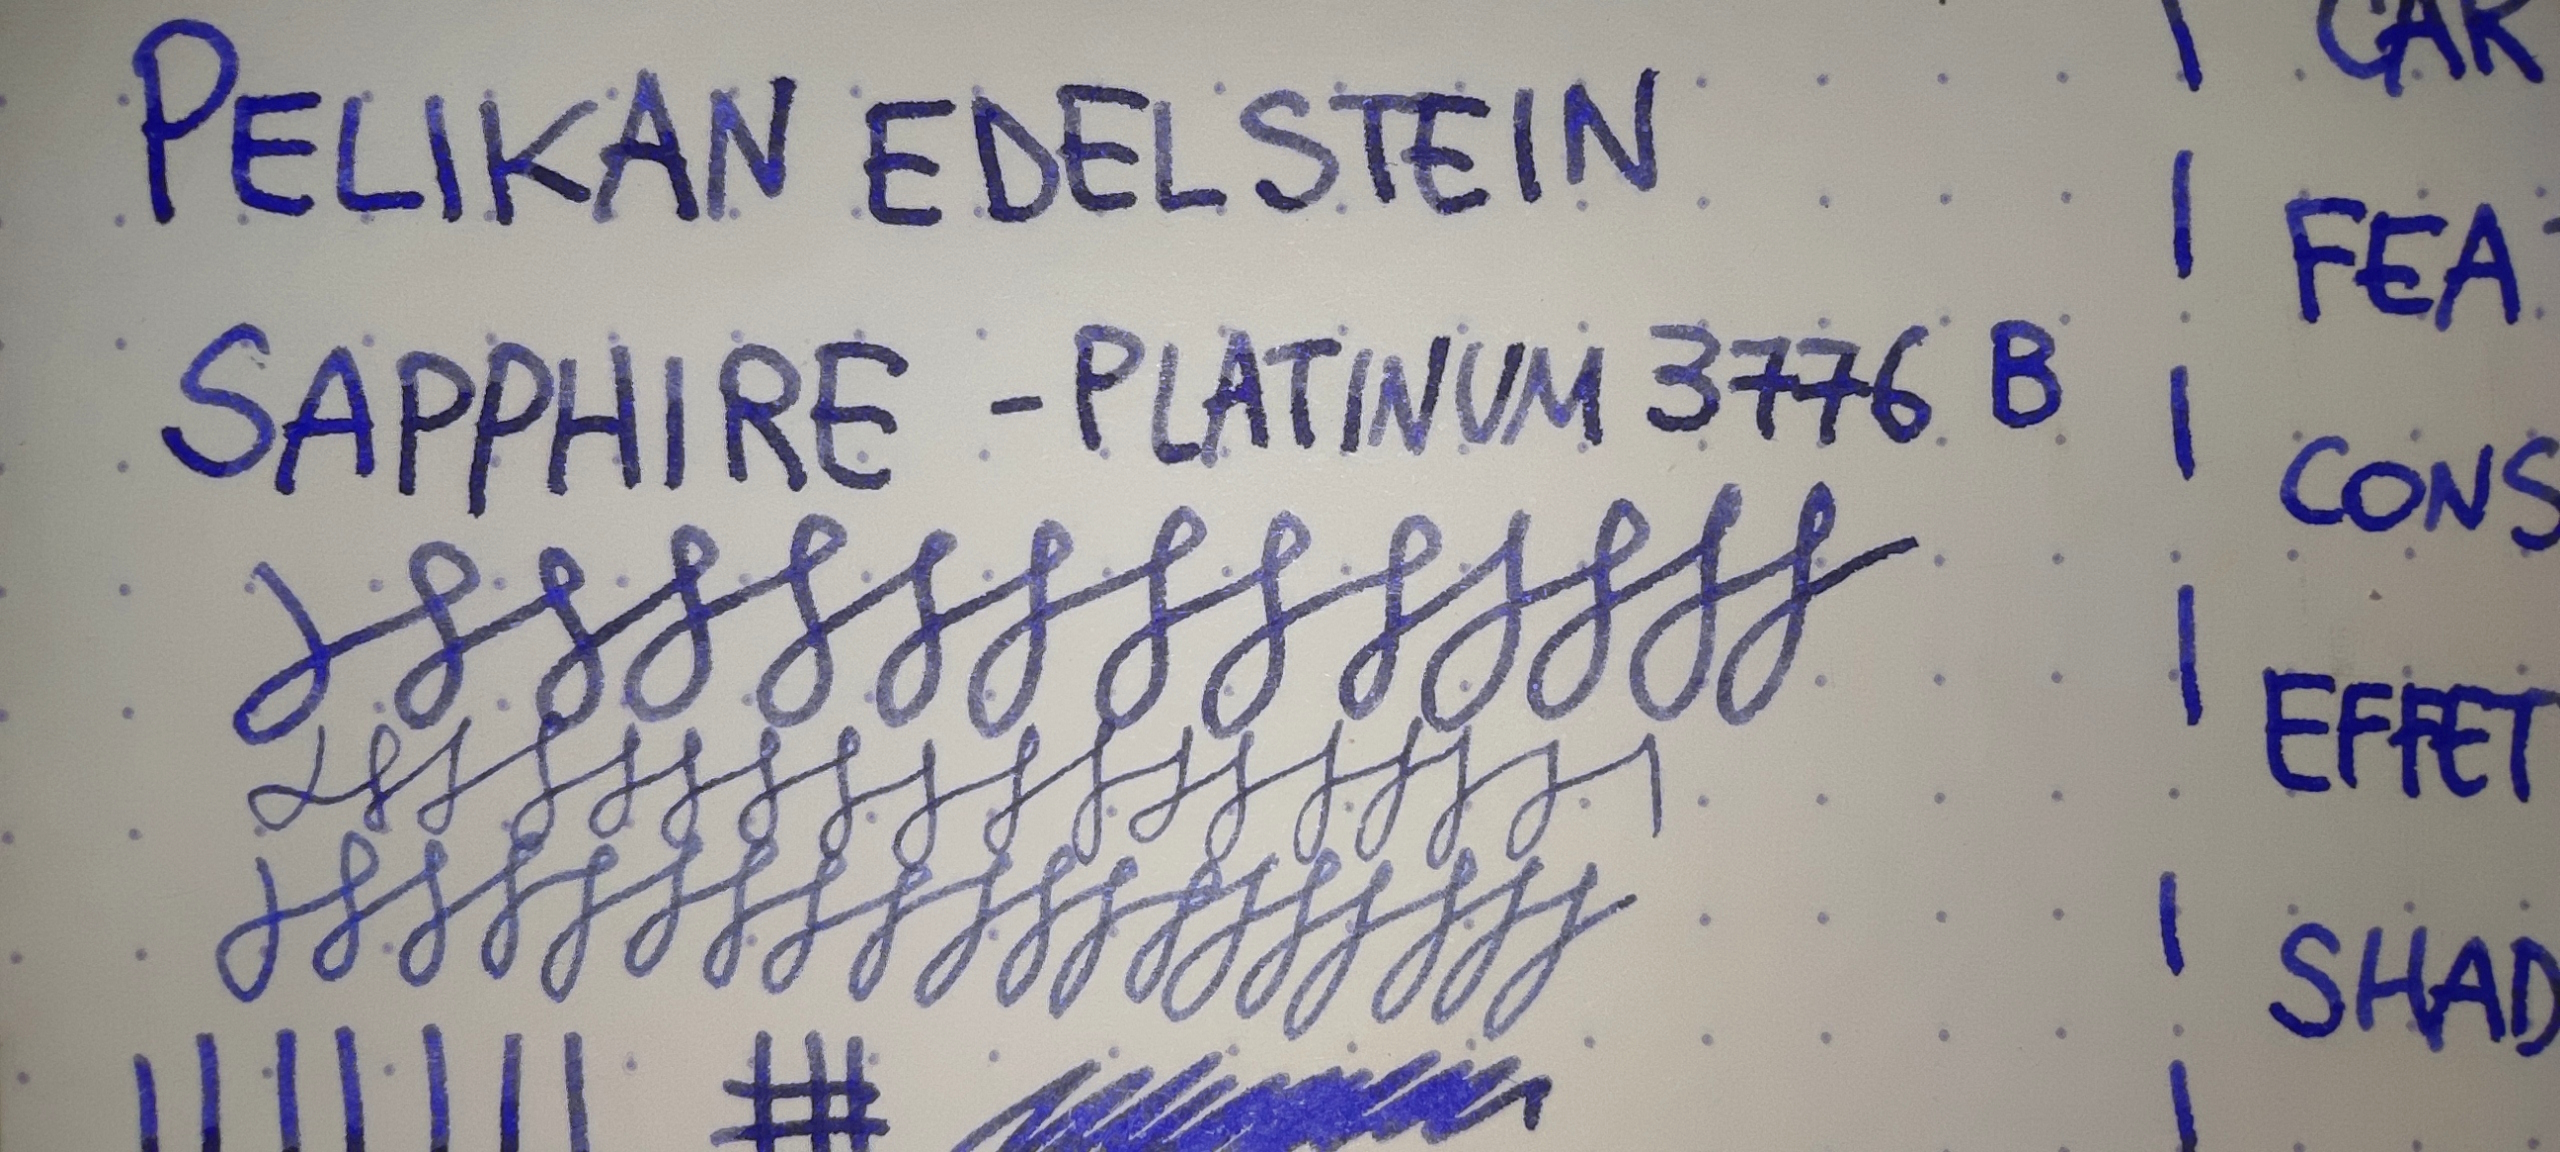 PELIKAN EDELSTEIN
SAPPHIRE - PLATINUM 3776 B
CAR
FEAT
CONS
EFFET
SHAD